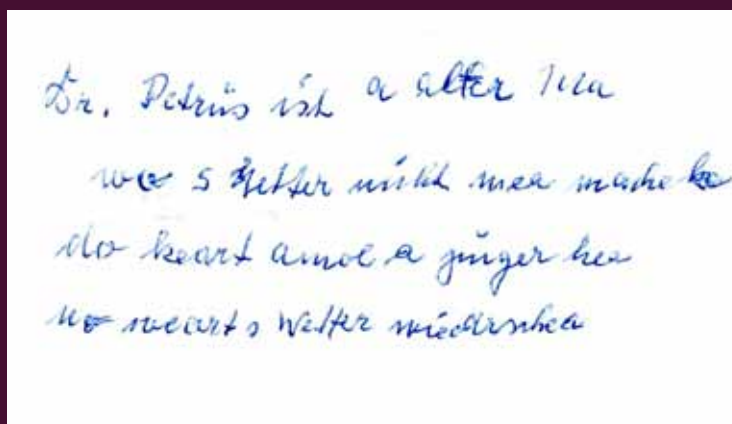 Dr. Petrus ist a alter Ma
wo s Wetter nicht mea mache ka
do keart amol a jünger hea
no weart s Wetter wiedrschea